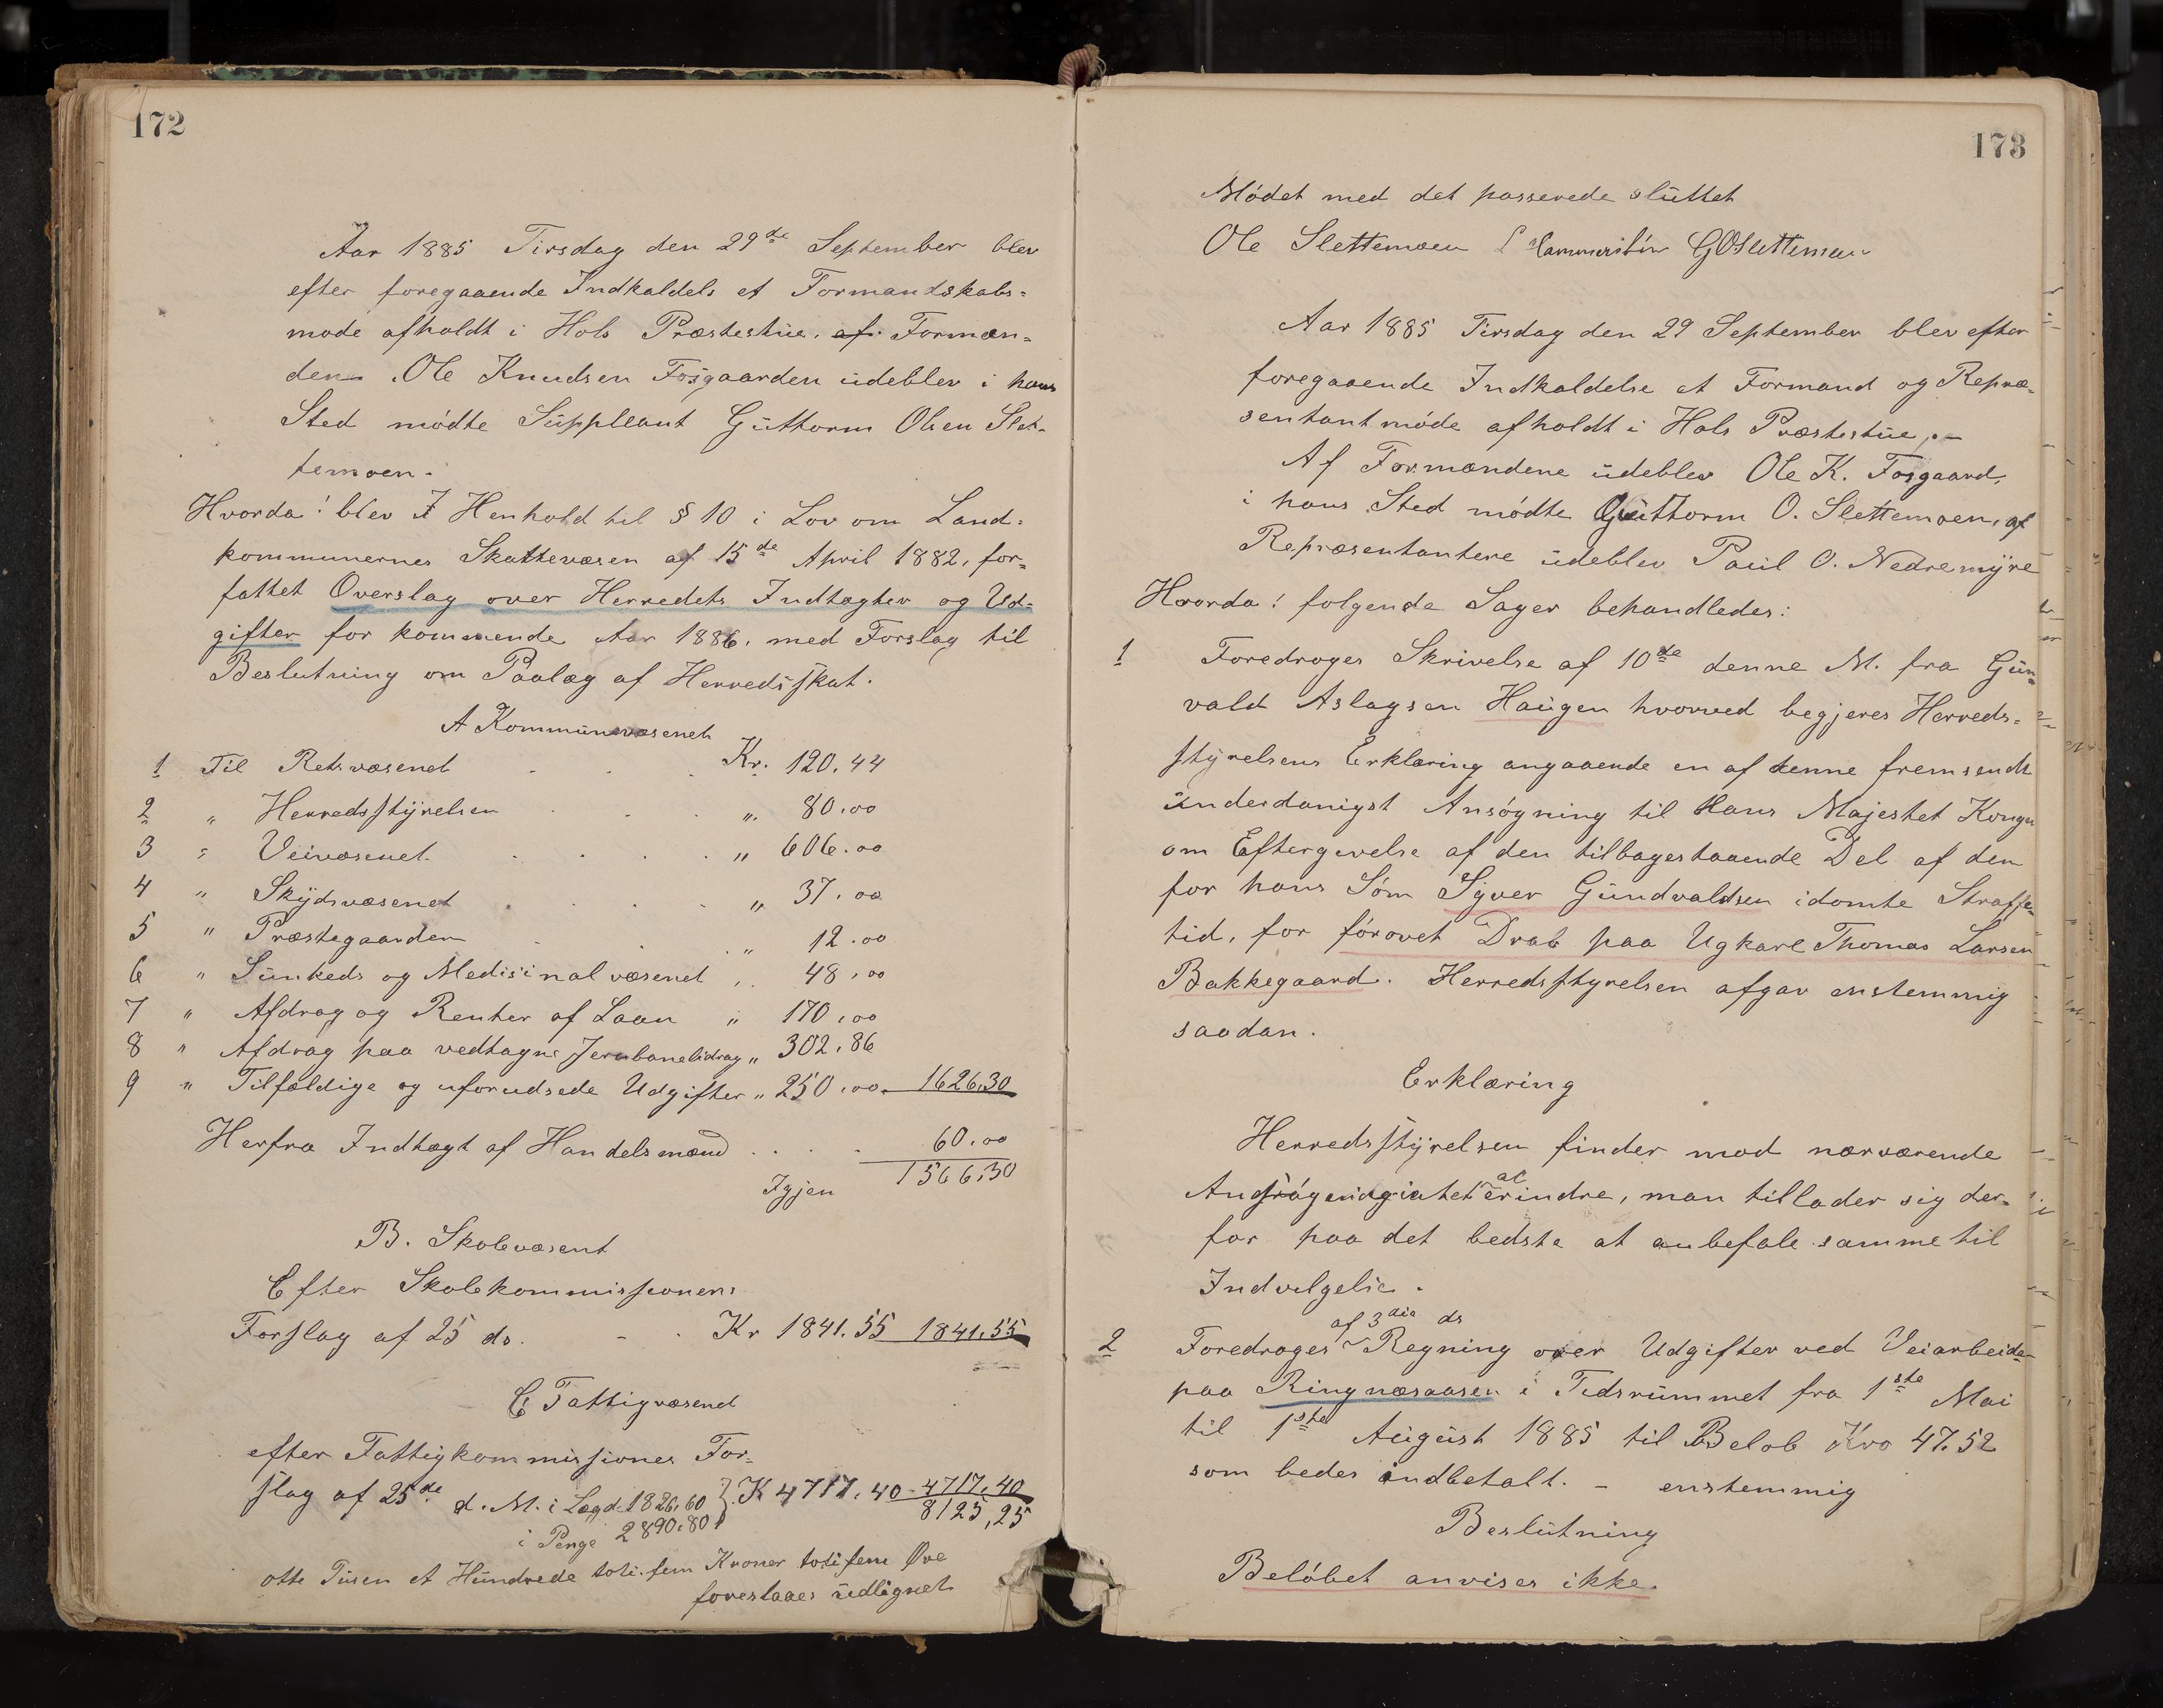 172
Aar 1885 Tirsdag den 29de September blev
efter foregaaende Indkaldels et Formandskabs=
møde afholdt i Hols Præstestue. af. Formæn=
den Ole Knudsen Fosgaarden udeblev i hans
Sted mødte Suppleant Guttorm Olsen Slet-
temoen.
Hvorda! blev I Henhold til § 10 i Lov om Land=
kommunernes Skattevæsen af 15de April 1882, for=
fattet Overslag over Herredets Indtægter og Ud=
gifter for kommende Aar 1886, med Forslag til
Beslutning om Paalæg af Herredsskat.
A Kommunevæsenet
1 Til Retsvæsenet Kr. 120.44
2 " Herredsstyrelsen " 80.00
3 " Veivæsenet " 606.00
4 " Skydsvæsenet " 37.00
5 " Præstegaarden " 12.00
6 " Sunheds og Medisinalvæsenet " 48.00
7 " Afdrag og Renter af Laan " 170.00
8 " Afdrag paa vedtagne Jernbanebidrag " 302.86
9 " Tilfældige og uforudsede Udgifter " 250.00 1626.30
Herfra Indtægt af Handelsmænd 60.00
Igjen 1566.30
B. Skolevæsent
Efter Skolekommissionens
Forslag af 25 ds. Kr 1841.55 1841.55
C Fattigvæsend
efter Fattigkommissiones For=
slag af 25de d. M. i Lægd 1826.60 } K 4717.40 - 4717.40
i Penge 2890.80 8125,25
otte Tusen et Hundrede toti fem Kroner totifem Øre
foreslaaes udlignet
173
Mødet med det passerede sluttet
Ole Slettemoen L Hammersbøn GOSlettemoen
Aar 1885 Tirsdag den 29 September blev efter
foregaaende Indkaldelse et Formand og Repræ=
sentantmøde afholdt i Hols Præstestue.-
Af Formændene udeblev Ole K. Fosgaard,
i hans Sted mødte Guttorm O. Slettemoen, af
Repræsentantene udeblev Paul O. Nedremyre
Hvorda! folgende Sager behandledes:
1 Foredroges Skrivelse af 10de denne M. fra Gun=
vald Aslagsen Haugen hvorved begjeres Herreds=
styrelsens Erklæring angaaende en af denne fremsendt
underdanigst Ansøgning til Hans Majestet Kongen
om Eftergivelse af den tilbagestaaende Del af den
for hans Søm Syver Gundvaldsen idømte Straffe=
tid, for forøvet Drab paa Ugkarl Thomas Larsen
Bakkegaard. Herredsstyrelsen afgav enstemmig
saadan.
Erklæring
Herredsstyrelsen finder mod nærværende
Andragende intet at erindre, man tillader sig der=
for paa det bedste at anbefale samme til
Indvelgelse.
af 3die ds
2 Foredroges Regning over Udgifter ved Veiarbeide
paa Ringnæsaasen i Tidsrummet fra 1ste Mai
til 1ste August 1885 til Beløb Kro 47.52
som bedes indbetalt. - enstemmig
Beslutning
Beløbet anvises ikke.